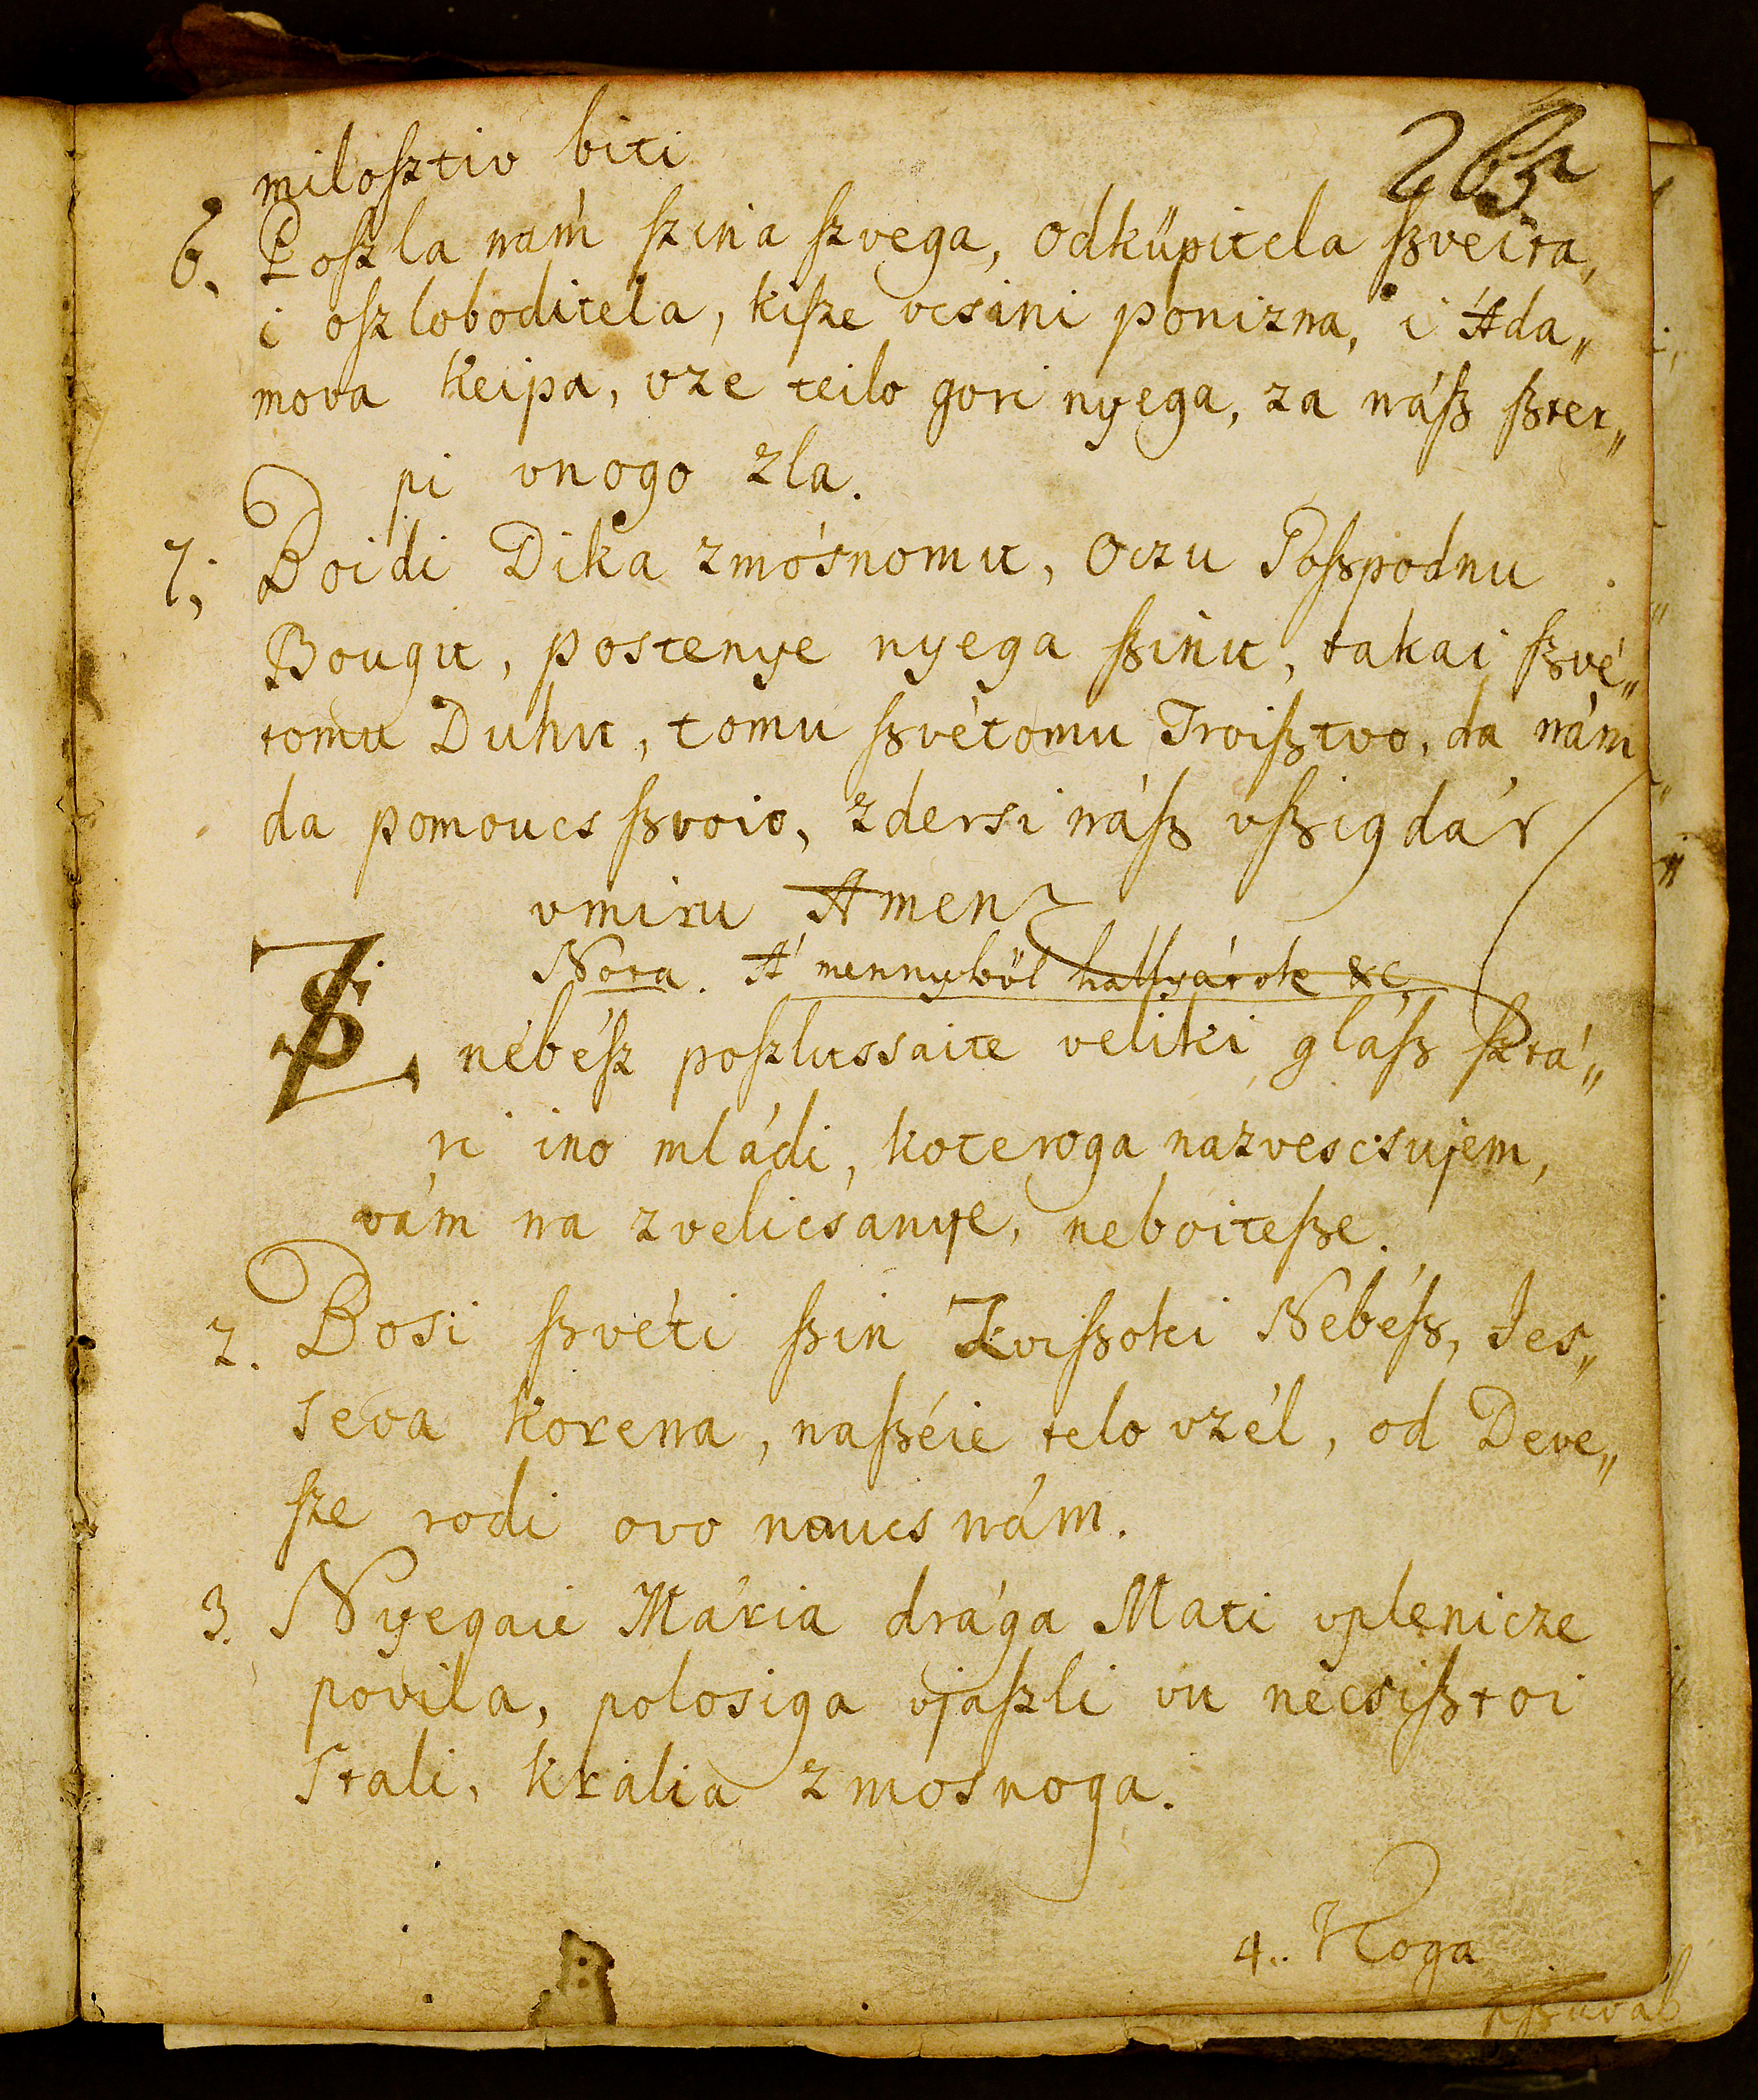 263.
miloſztiv biti
6. Poſzla nám ſzina ſzvega, odküpitela ſzveita,
i oſzloboditela, kiſze vcsini ponizna, i Ada„
mova Keipa, vze teilo gori nyega, za náſz ſzter„
pi vnogo zla.
7. Boidi Dika zmósnomu, Oczu Goſzpodnu
Bougu, postenye nyega ſzinu, takai ſzvé„
tomu Duhu, tomu ſzvétomu Troiſztvo, da nám
da pomoucs ſzvoio, zdersi náſz vſzigdár
vmiru Amen
Nota. A' mennyböl hallyátok &c
Iz nébéſz poſzlussaite veliki gláſz ſztá„
ri ino mládi, koteroga nazvescsujem,
vám na zvelicsanye, neboiteſze.
2. Bosi ſzvéti ſzin Zviſzoki Nébéſz, Jes„
seva korena, naſzéie telo vzél, od Deve„
ſze rodi ovo noucs nám.
3. Nyegaie Mária drága Mati vplenicze
povila, polosiga vjaſzli vu necsiſztoi
stali, kralia zmosnoga.
4.. Koga